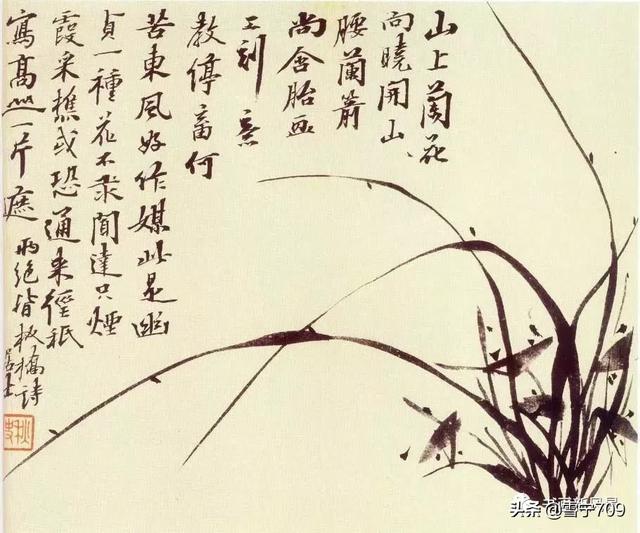 山上蘭花
向曉開山
腰蘭箭
尚含胎画
工刻意
教停蓄何
苦東風好作媒此是幽
貞一種花不求聞達只煙
霞采樵或恐通来徑祇
寫高山一片遮 两絕皆板橋詩
居士
秋史
头条@雪宁709